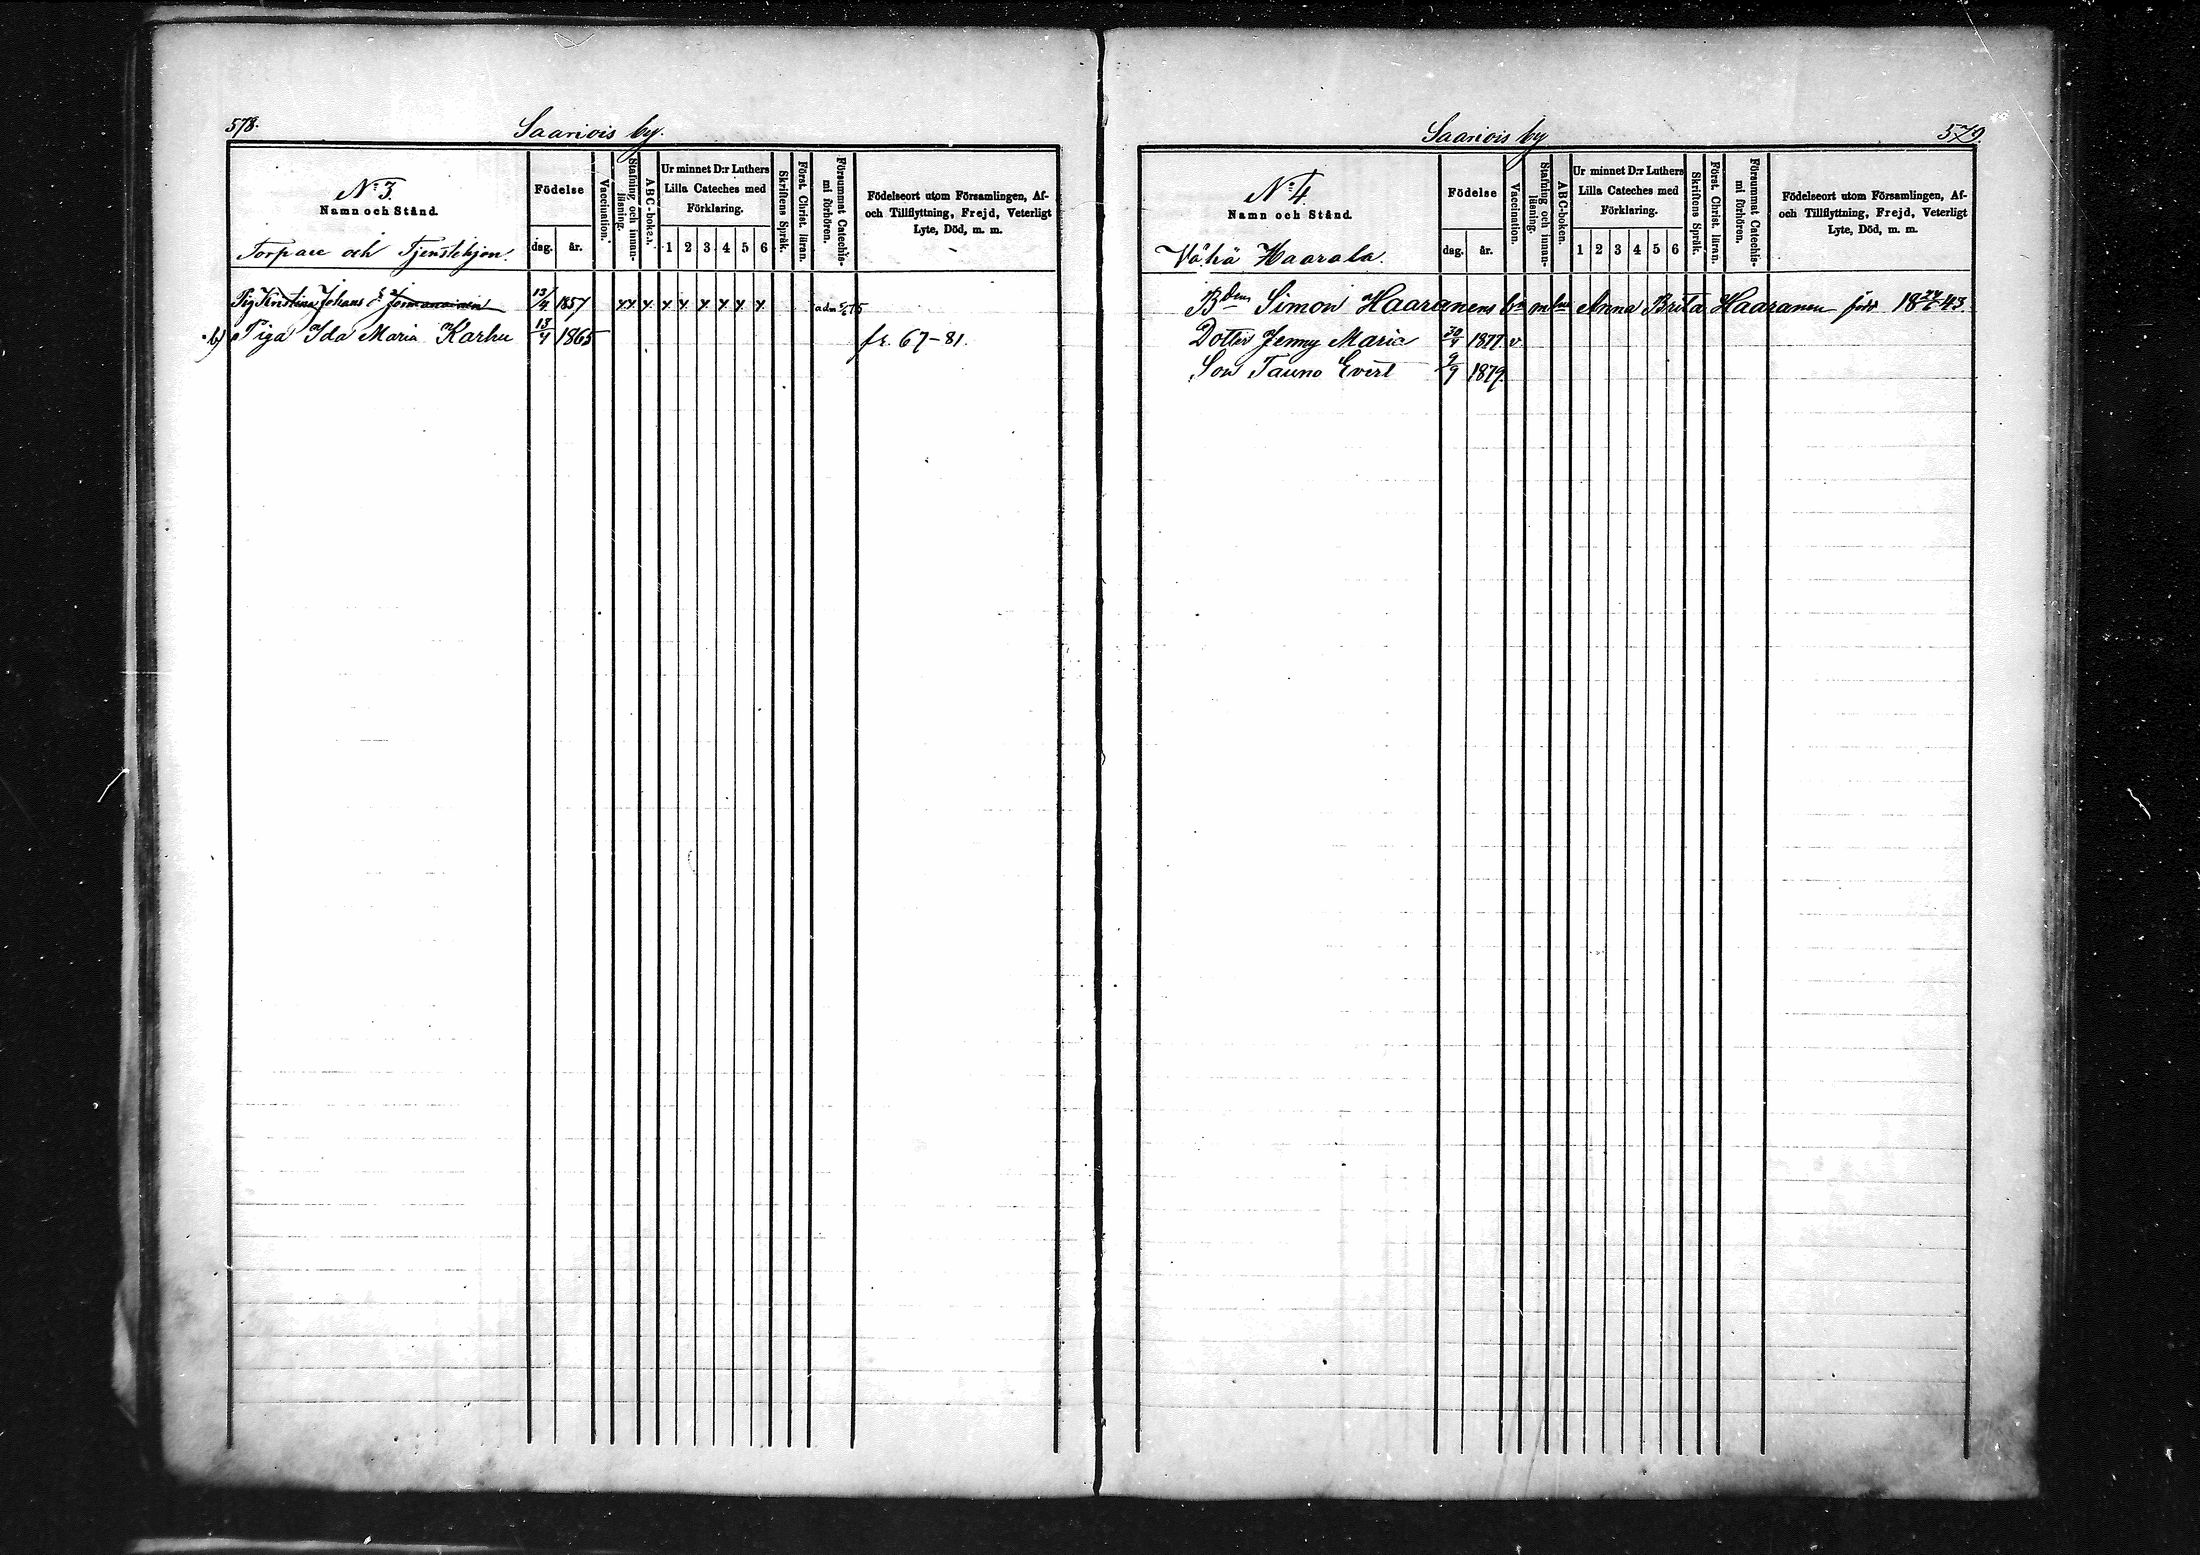 578.
Saariois by.
No 3.
Namn och Stånd.
Torpare och Tjenstehjon.
Födelse
dag. år.
Vaccination.
Stafning och innan-
läsning.
ABC-boken.
Ur minnet D:r Luthers
Lilla Cateches med
Förklaring.
1 2 3 4 5 6
Skriftens Språk.
Först. Christ. läran.
Försummat Catechis-
mi förhören.
Födelseort utom Församlingen, Af-
och Tillflyttning, Frejd, Veterligt
Lyte, Död, m. m.
Pig Kristina Johans 13/4 1857 x x x x x x x x x adm 75
b) Piga Ida Maria Karhu 13/4 1865 fr. 67-81.
579.
Saariois by
No 4.
Namn och Stånd.
Vähä Haarala.
Födelse
dag. år.
Vaccination.
Stafning och innan-
läsning.
ABC-boken.
Ur minnet D:r Luthers
Lilla Cateches med
Förklaring.
1 2 3 4 5 6
Skriftens Språk.
Först. Christ. läran.
Försummat Catechis-
mi förhören.
Födelseort utom Församlingen, Af-
och Tillflyttning, Frejd, Veterligt
Lyte, Död, m. m.
Bden Simon Haaranens Anna Brita Haaranen född 18 43.
Dotter Jenny Maria 30/4 1877. v.
Son Tauno Evert 9/9 1879.